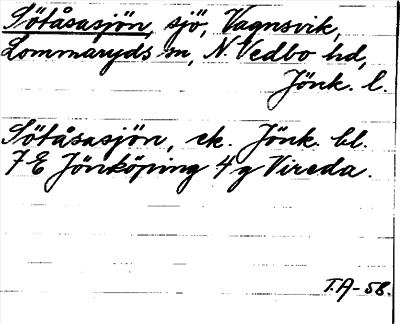 Sötåsasjön, sjö, Vagnsvik,
Lommaryds sn, N. Vedbo hd,
Jönk. l.
Sötåsasjön, ek. Jönk. bl.
7 E Jönköping 4 g Vireda.
T.A-58.